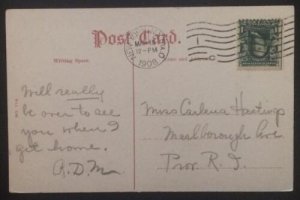 Post Card.
Writing Space.
1908
Will really
be over to see
you when I
get home.
R.D.M.
Miss Carlena Hastings
Marlborough Ave
Prov R.I.